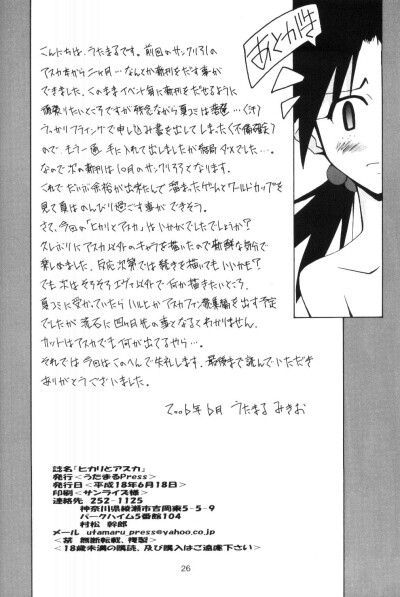 あとがき
こんにちは、うたまるです。前回のサンクリ31の
アスカ本から二ヶ月…なんとか新刊をだす事が
できました。このままイベント毎に新刊をだせるように
頑張りたいところですが残念ながら夏コミは落選…(汗)
うっかりフライングで申し込み書を出してしました(不備確定)
ので、もう一通手に入れて出しましたが結局ダメでした…。
なので次の新刊は10月のサンクリ33となります。
これでだいぶ余裕が出来たんで溜まったゲームとワールドカップを
見て夏はのんびり過ごす事ができそう。
さて、今回の「ヒカリとアスカ」はいかがでしたでしょうか?
久しぶりにアスカ以外のキャラを描いたので新鮮な気分で
楽しめました。反応次第では続きを描いてもいいかも?
でも次はそろそろエヴァ以外で何か描きたいところ。
夏コミに受かっていたらハルヒかアスカファン募集編を出す予定
でしたが流石に四ヶ月先の事となるとわかりません。
カットはアスカでも何が出てるやら…。
それでは今回はこのへんで失礼します。最後まで読んでいただき
ありがとうございました。
2006年6月 うたまる みきお
誌名「ヒカリとアスカ」
発行<うたまるPress>
発行日<平成18年6月18日>
印刷<サンライズ様>
連絡先 252-1125
神奈川県綾瀬市吉岡東5-5-9
パークハイム5番館104
村松 幹郎
メール utamaru_press@yahoo.co.jp
<禁 無断転載、複製>
<18歳未満の購読、及び購入はご遠慮下さい>
26